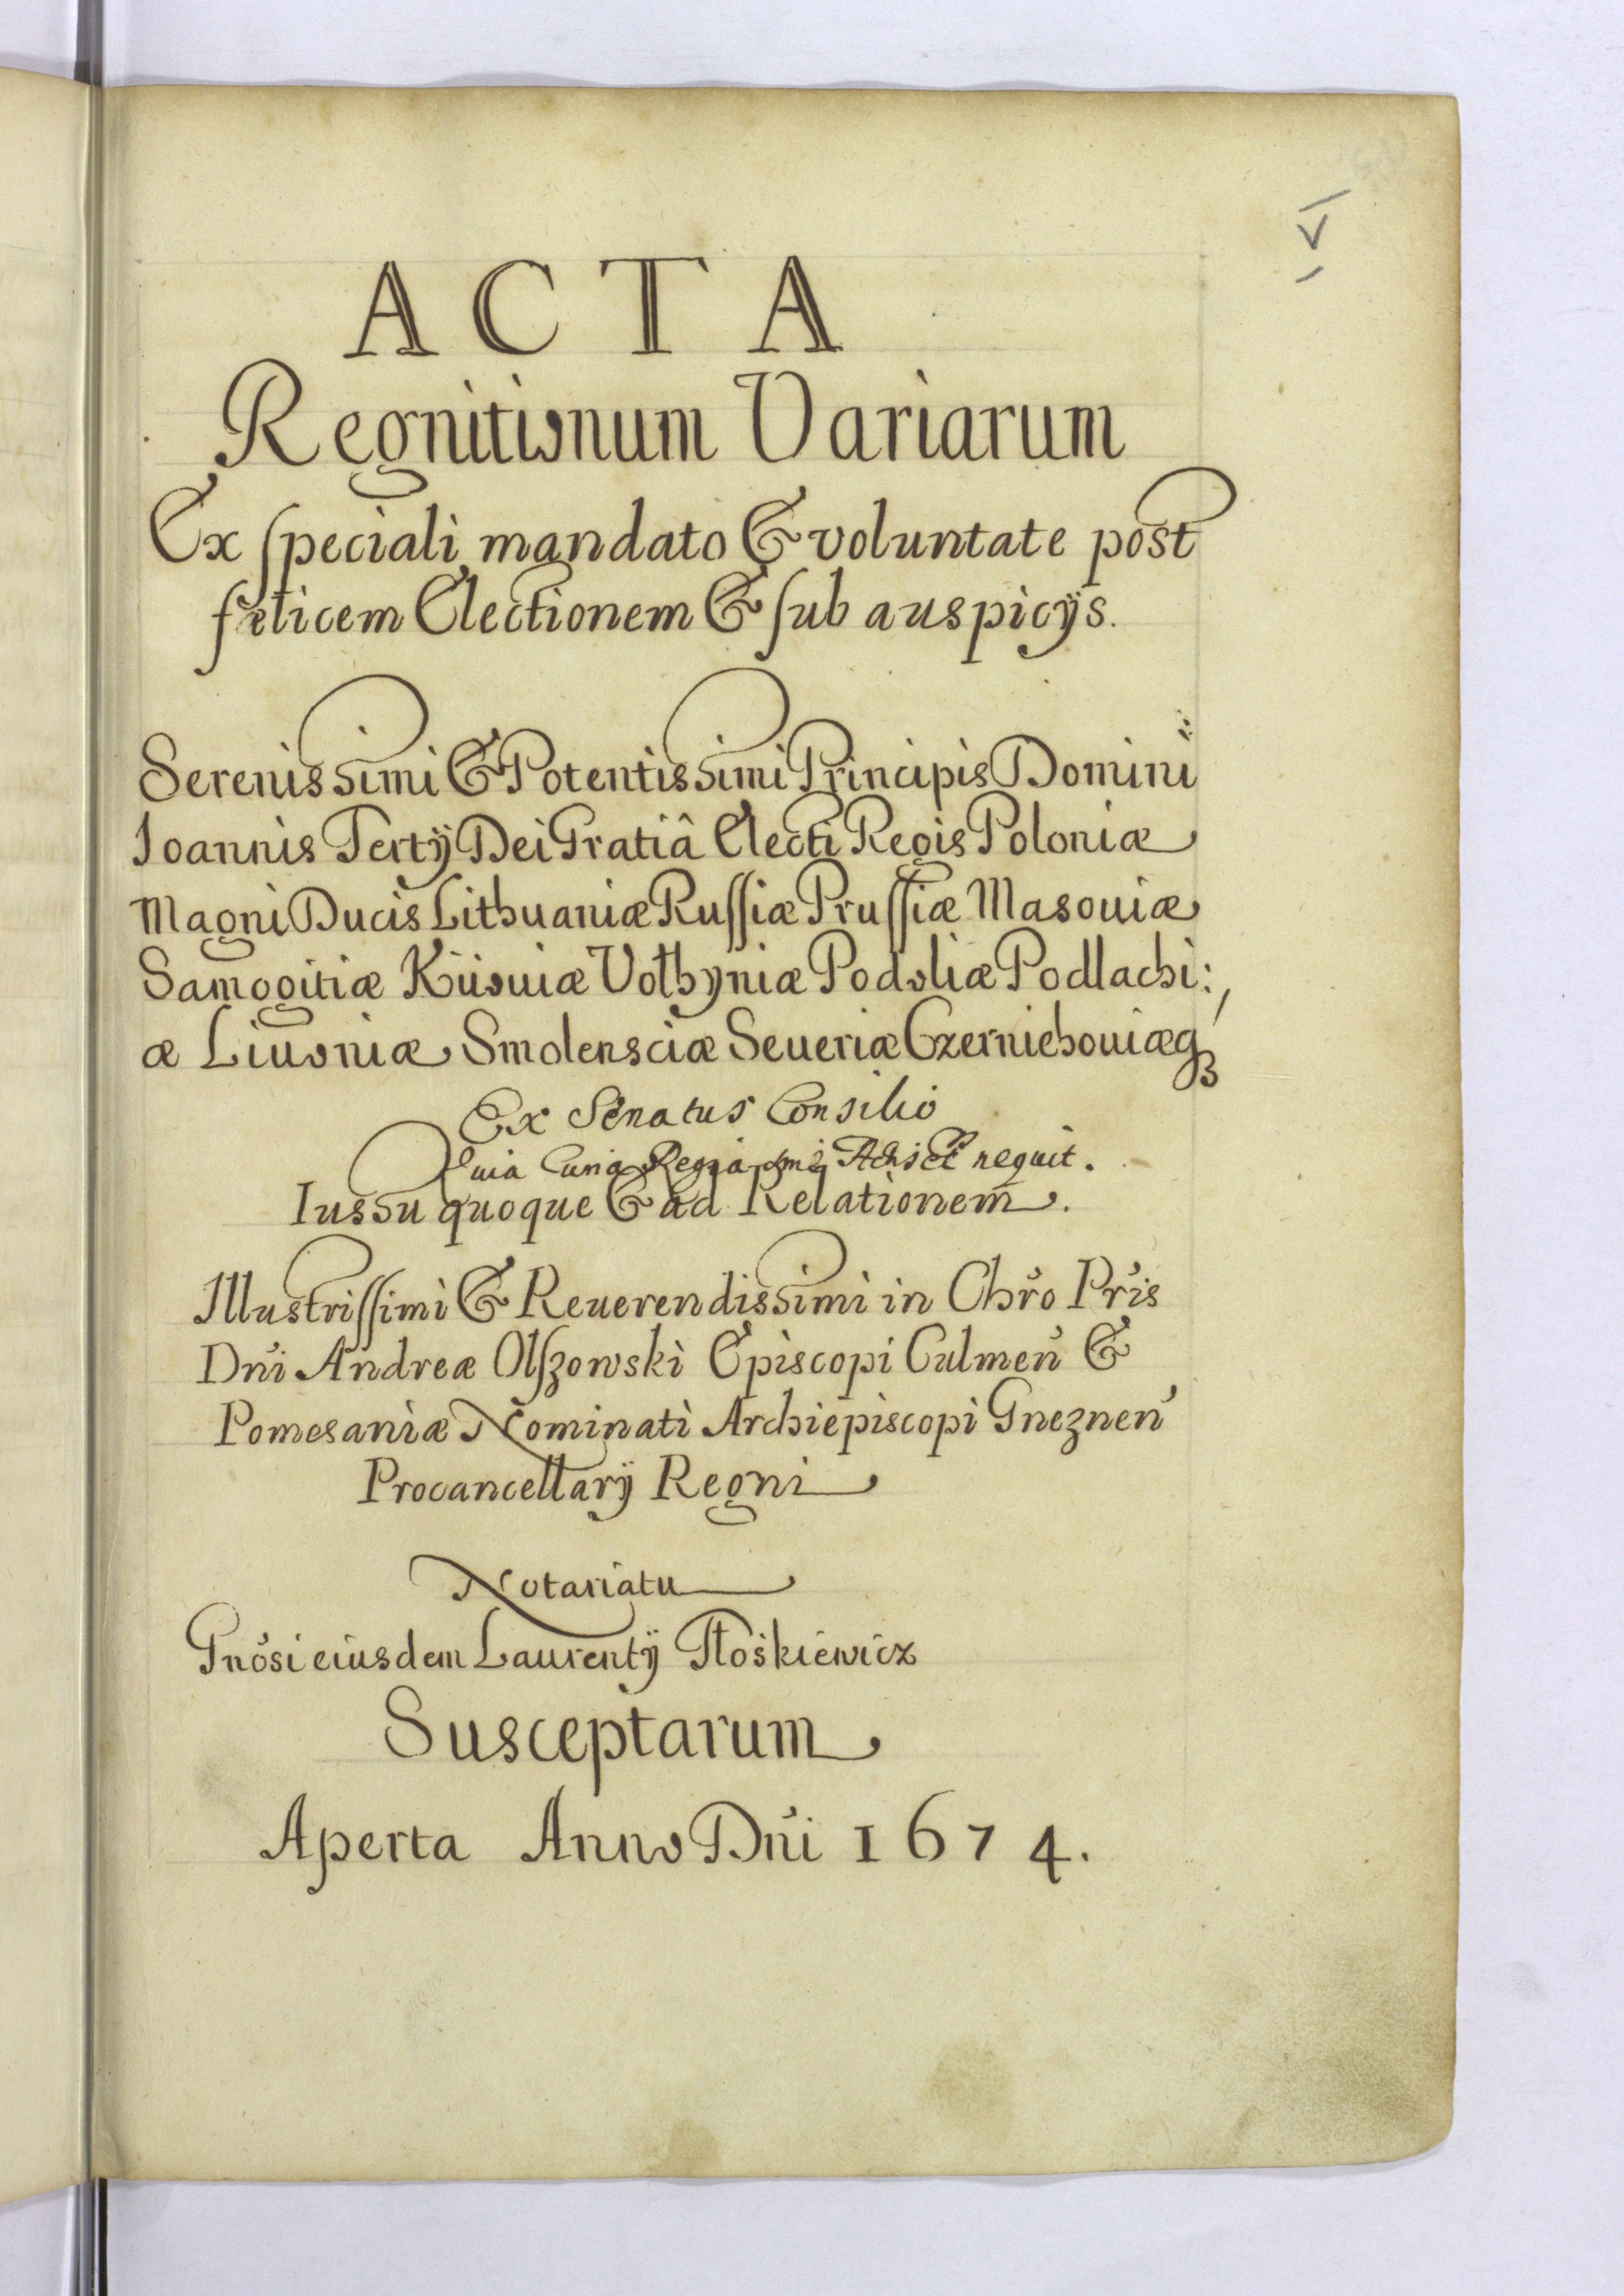 ACTA
Regnitionum Variarum
Ex speciali mandato & voluntate post
fælicem Electionem & sub auspicijs.
Serenissimi & Potentissimi Principis Domini
Ioannis Tertij Dei Gratiâ Electi Regis Poloniæ
Magni Ducis Lithuaniæ Russiæ Prussiæ Masouiæ
Samogitiæ Kiiouiæ Volhyniæ Podoliæ Podlachi:
æ Liuoniæ Smolensciæ Seueriæ Czerniehouiæqꝫ
Ex Senatus Consilio
Quia Curia Regia nequit.
Iussu quoque & ad Relationem.
Illustrissimi & Reuerendissimi in Chro Pris
Dni Andreæ Olszowski Episcopi Culmen &
Pomesaniæ Nominati Archiepiscopi Gneznen
Procancellarij Regni
Notariatu
Gnosi eiusdem Laurentij Płoskiewicz
Susceptarum
Aperta Anno Dni 1674.